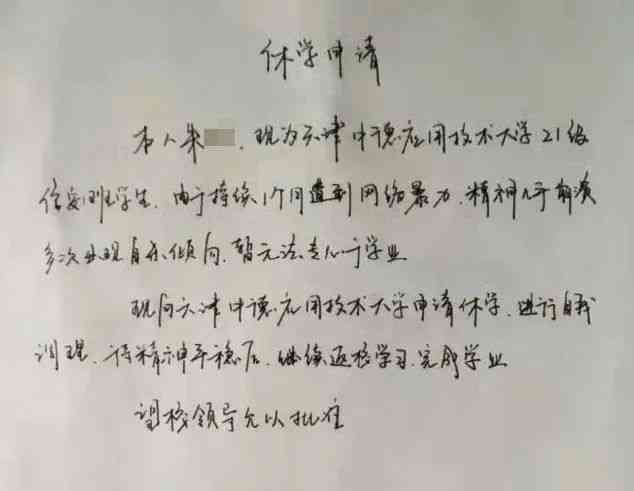 休学申请
本人朱 ，现为天津中德应用技术大学21级
信安班学生，由于持续1个月遭到网络暴力，精神几乎崩溃
多次出现自杀倾向，暂无法专心于学业
现向天津中德应用技术大学申请休学，进行自我
调理，待精神平稳后，继续返校学习，完成学业
望校领导允以批准